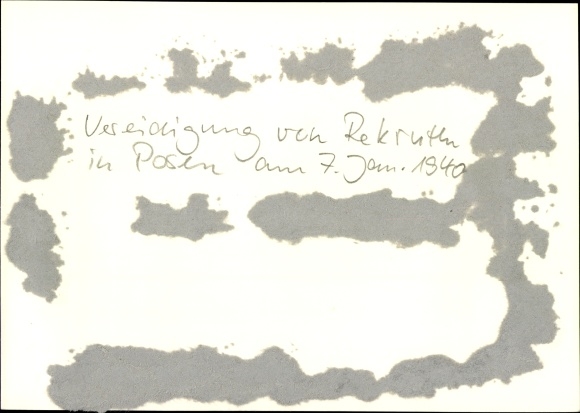 Vereidigung von Rekruten
in Posen am 7. Jan. 1940